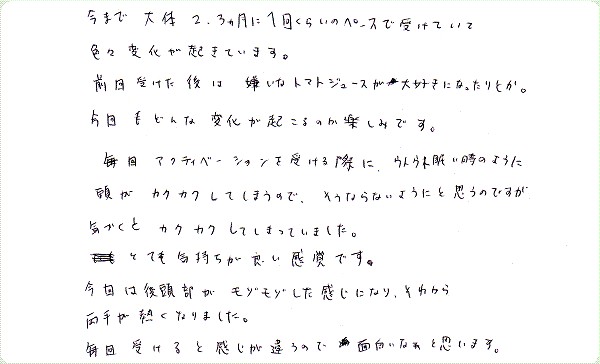 今まで 大体 2、3ヵ月に1回くらいのペースで受けていて
色々変化が起きています。
前回受けた後は 嫌いなトマトジュースが大好きになったりとか。
今回もどんな変化が起こるのか楽しみです。
毎回 アクティベーションを受ける際に、ウトウト眠い時のように
頭が カクカクしてしまうので、そうならないようにと思うのですが
気がくと カクカクしてしまっていました。
とても気持ちが良い感覚です。
今回は後頭部が モゾモゾした感じになり、それから
両手が熱くなりました。
毎回 受けると感じが違うので 面白いなぁと思います。